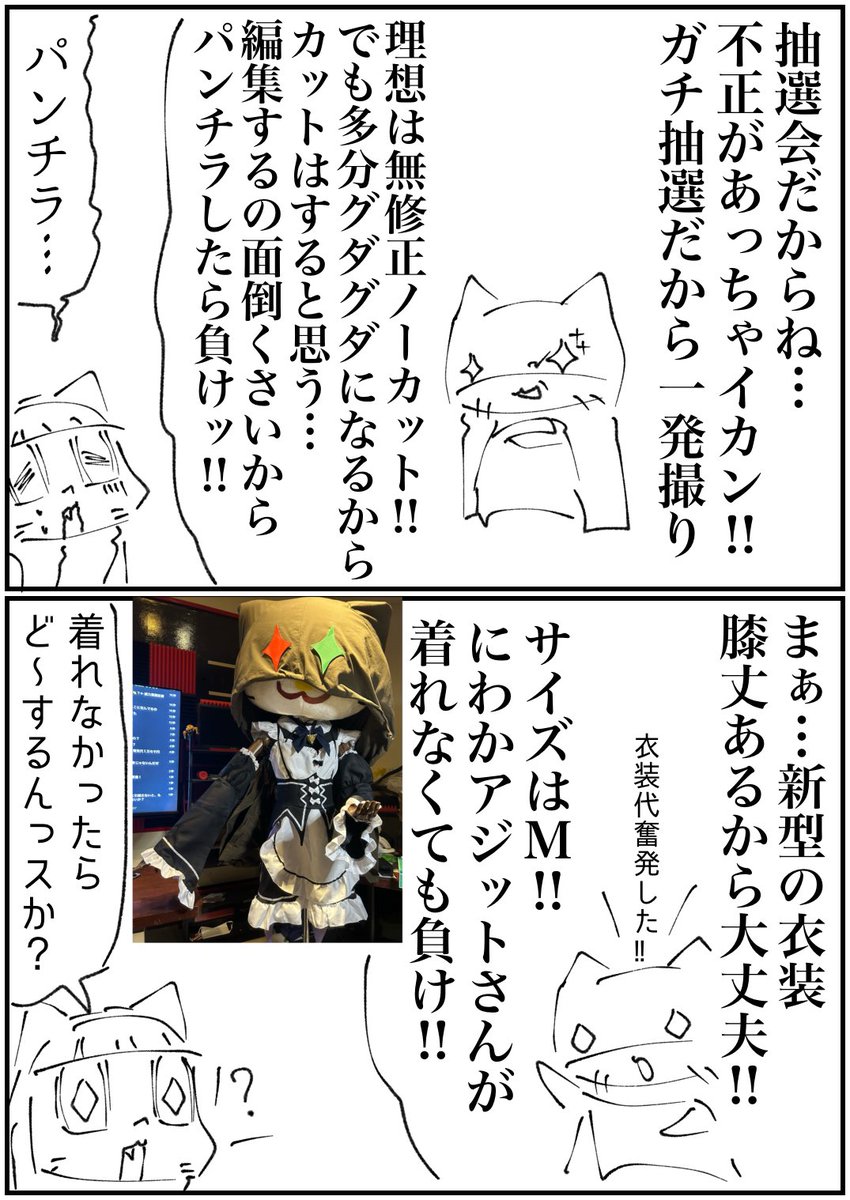 抽選会だからね…
不正があっちゃイカン!!
ガチ抽選だから一発撮り
理想は無修正ノーカット!!
でも多分グダグダになるから
カットはすると思う…
編集するの面倒くさいから
パンチラしたら負けッ!!
パンチラ…
まぁ…新型の衣装
膝丈あるから大丈夫!!
衣装代奮発した!!
サイズはM!!
にわかアジットさんが
着れなくても負け!!
着れなかったら
ど〜するんっスか?
!?